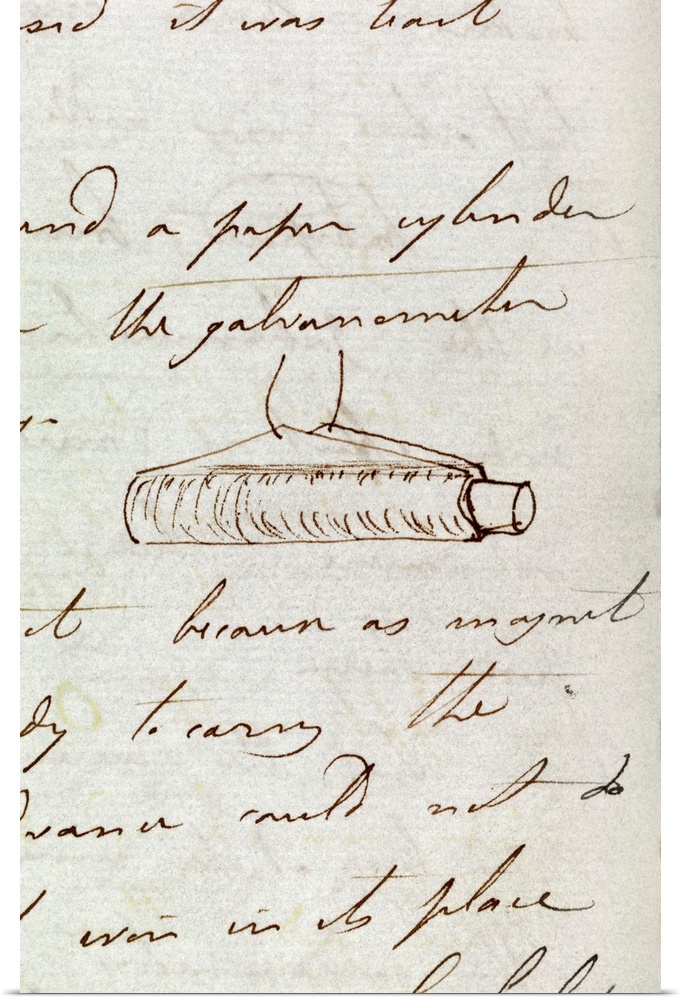 it was
and a paper cylinder
the galvanometer
it becaus as magnet
dy to carry the
could not do
iron in its place